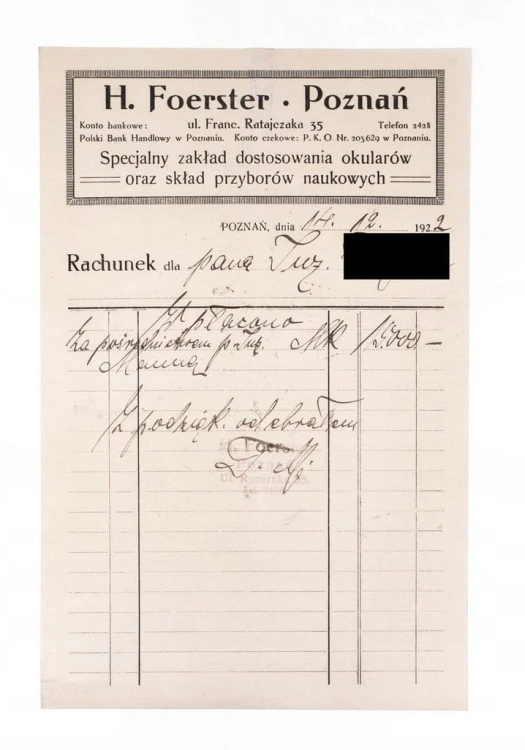 H. Foerster · Poznań
ul. Franc. Ratajczaka 35
Konto bankowe: Telefon 2428
Polski Bank Handlowy w Poznaniu. Konto czekowe: P. K. O. Nr. 205629 w Poznaniu.
Specjalny zakład dostosowania okularów
oraz skład przyborów naukowych
POZNAŃ, dnia 14. 12. 1922
Rachunek dla pana Inż.
Wpłacono
Za pośrednictwem p. Inż. Mk 15.000 —
Z podzięk. odebrałem
H. Foerst
Poznań
Ul. 35.